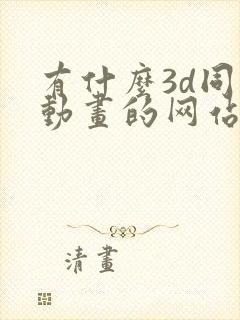 有什麼3d同
動畫的网站
清畫